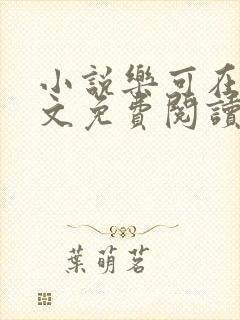 小說樂可在
文免費閱讀
葉萌茗